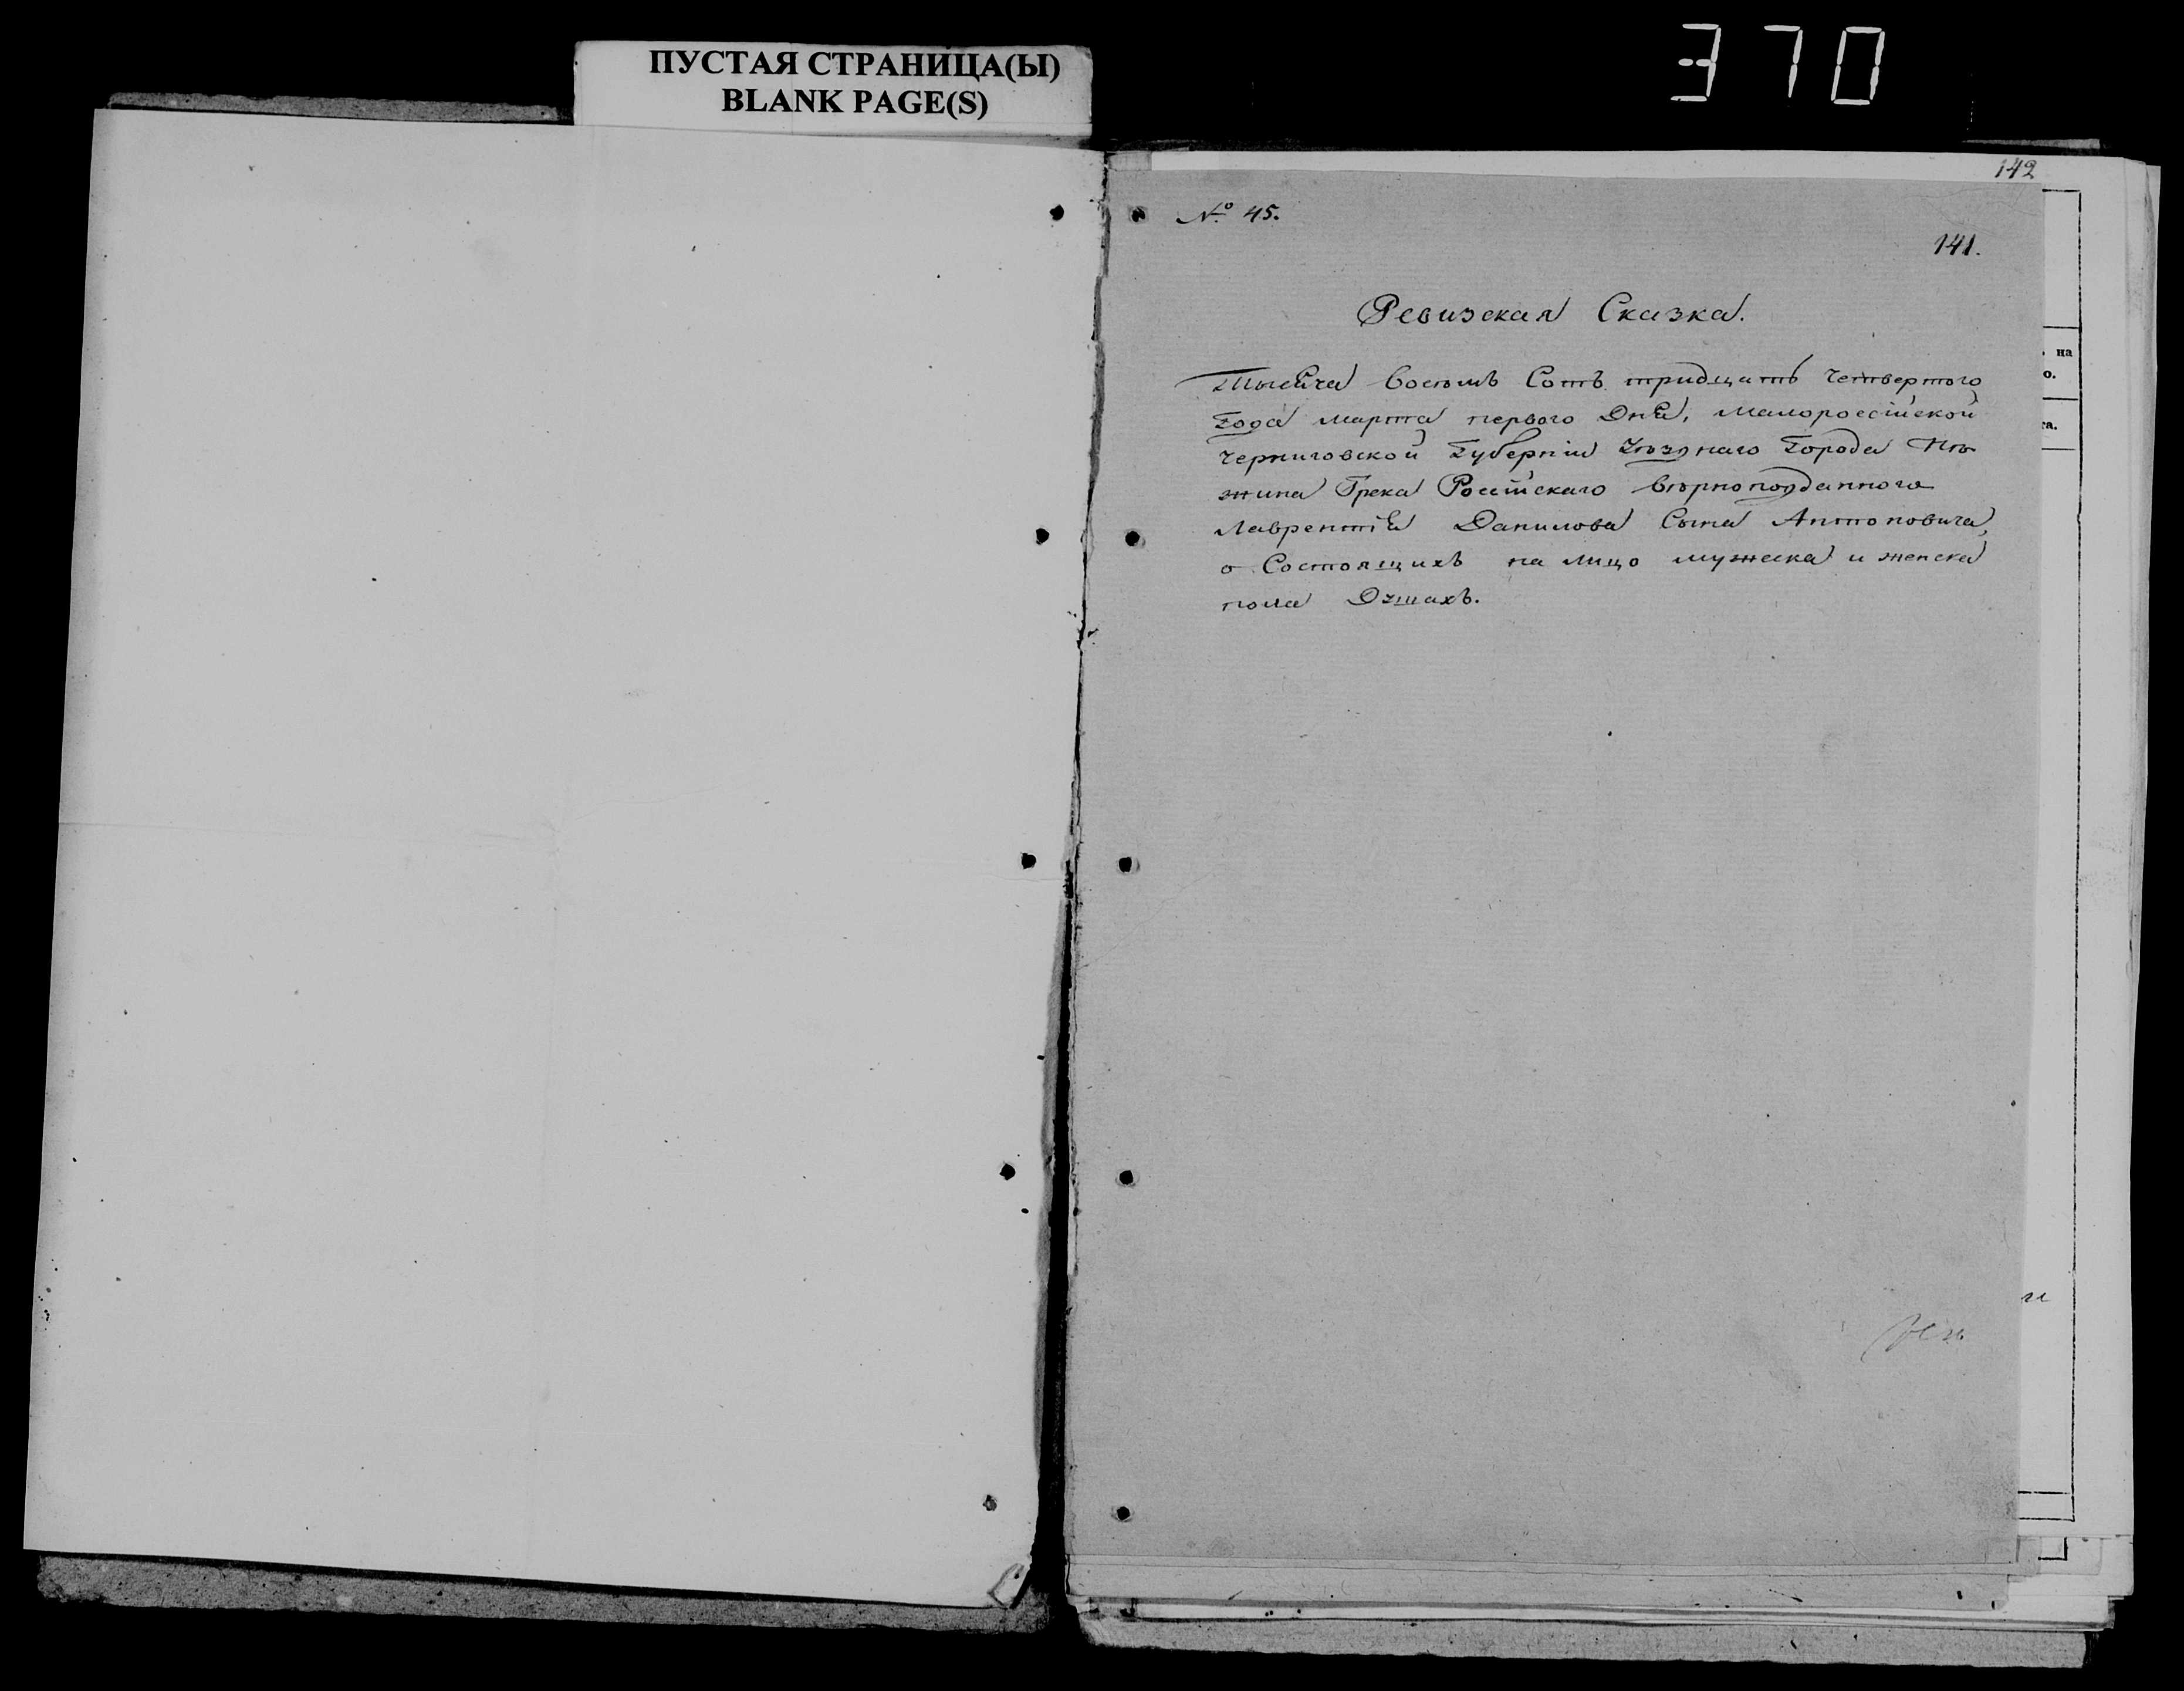 ПУСТАЯ СТРАНИЦА(Ы)
BLANK PAGE(S)
370
142
№ 45.
141.
Ревизская Сказка.
Тысяча восемь Сотъ тридцать четвертого
Года марта первого Дня, малороссійской
черниговской Губерніи Уѣзднаго Города Нѣ
жина Грека Россійскаго вѣрноподданного
Лаврентія Данилова Сына Антоновича,
о Состоящихъ на лицо мужеска и женска
пола Душахъ.
на
о.
га.